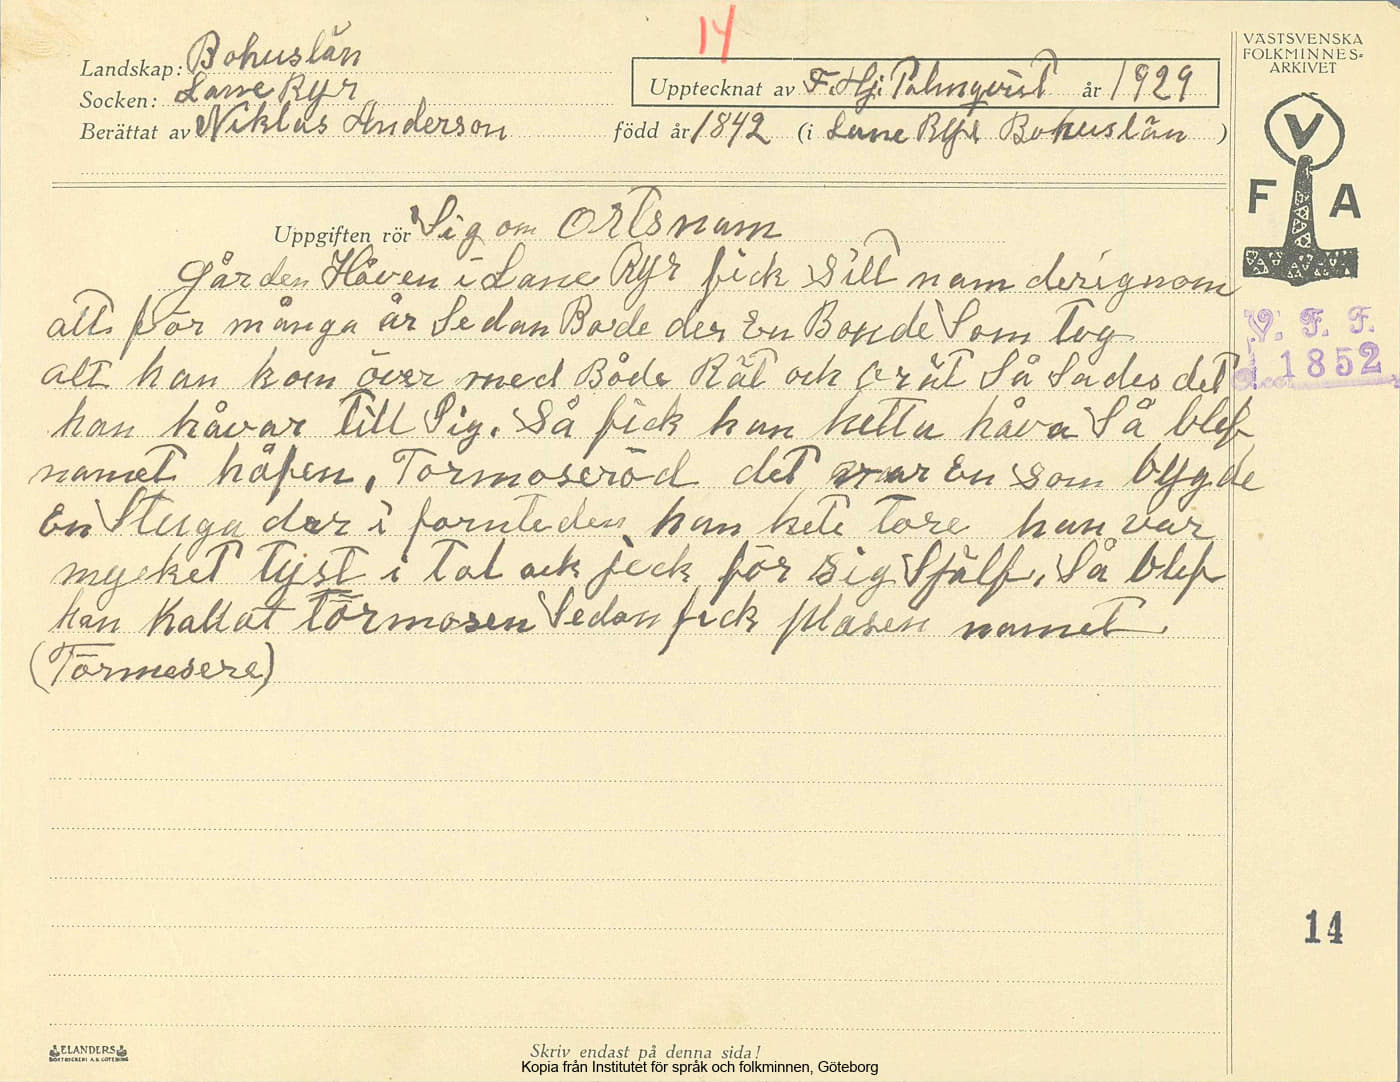 14
Landskap: Bohuslän
Socken: Lane Ryr
Berättat av Niklas Anderson
Upptecknat av F. Hj. Palmqvist år 1929
född år 1842 (i Lane Ryr Bohuslän )
VÄSTSVENSKA
FOLKMINNES-
ARKIVET
V
F A
V. F. F.
1852
Uppgiften rör Sig om Ortsnam
Gården Håven i Lane Ryr fick sitt nam derignom
att för många år Sedan Bode der En Bonde Som tog
alt han kom över med Både Rät och orät Så Sades det
han håvar till Sig. Så fick han hetta håva Så blef
namet håfen. Tormoseröd det var En Som bygde
En Stuga der i fornteden han hete tore han var
mycket tyst i tal ock jeck för sig Själf. Så blef
han Kallat törmosen Sedan fick plasen namet
(Tormesere)
14
ELANDERS
BOKTRYCKERI A.B. GÖTEBORG
Skriv endast på denna sida!
Kopia från Institutet för språk och folkminnen, Göteborg